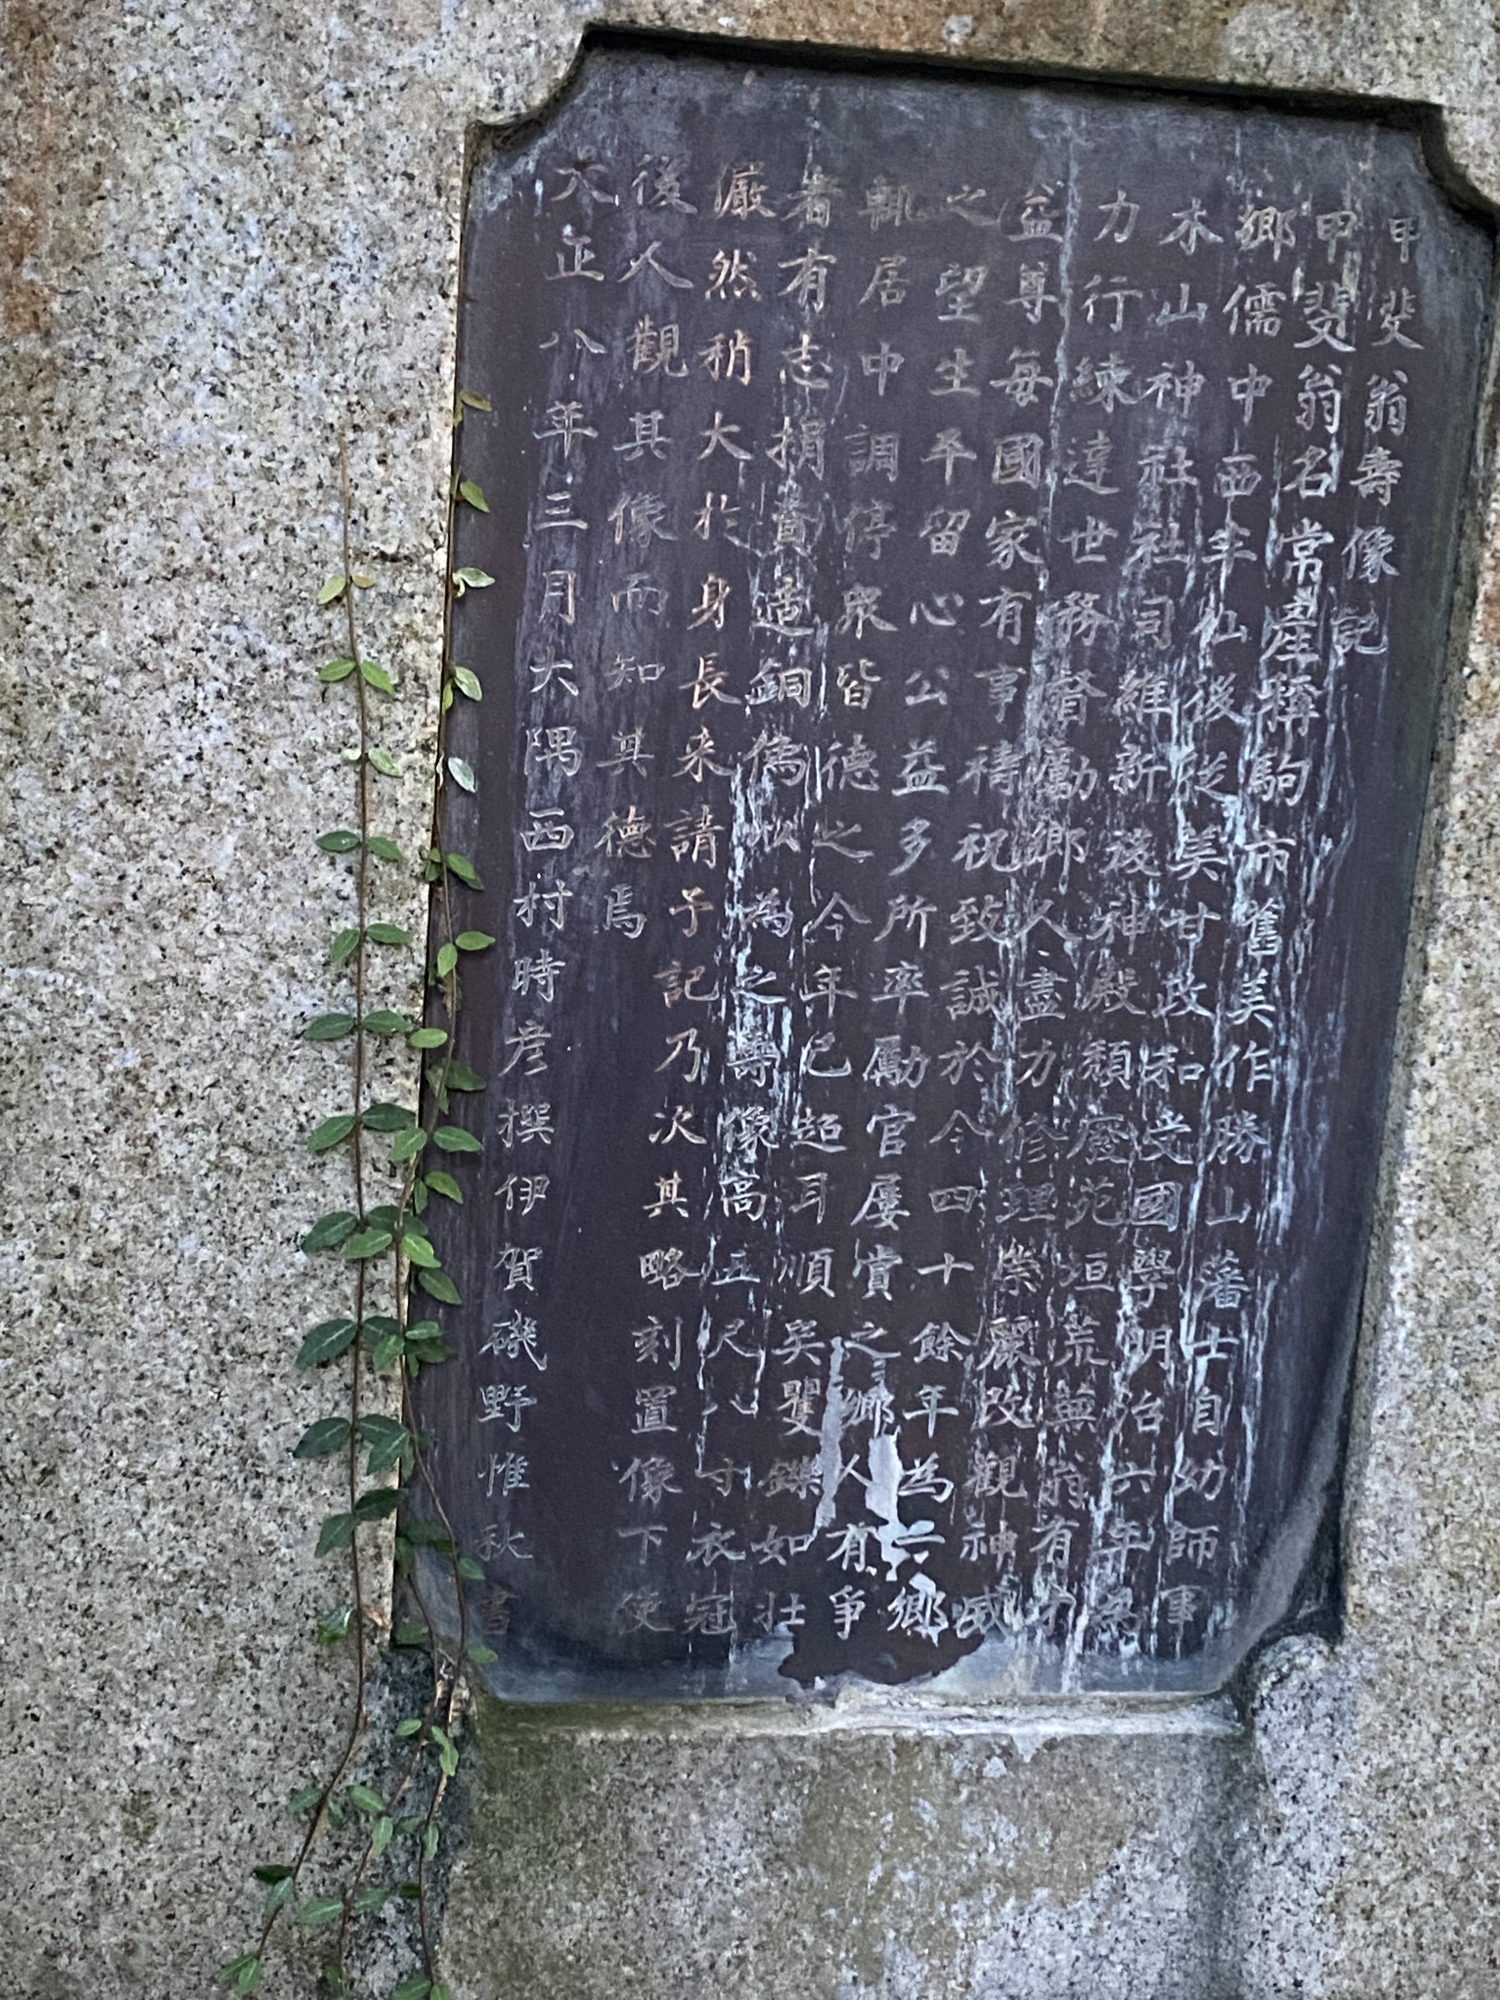 甲斐翁壽像記
甲斐翁名常産稱駒市舊美作勝山藩士自幼師事
鄉儒中西半仙後從美甘政和受國學明治六年為
木山神社社司維新後神殿頽廢苑垣荒蕪翁有才
力行練達世務督勵鄉人盡力修理崇麗改觀神威
益尊每國家有事禱祝致誠於今四十餘年為一鄉
之望生平留心公益多所率勵官屢賞之鄉人有爭
輒居中調停眾皆德之今年已超耳順矣矍鑠如壯
者有志捐貲造銅像以為之壽像高五尺八寸衣冠
儼然稍大於身長来請予記乃次其略刻置像下使
後人觀其像而知其德焉
大正八年三月大隅西村時彦撰伊賀磯野惟秋書